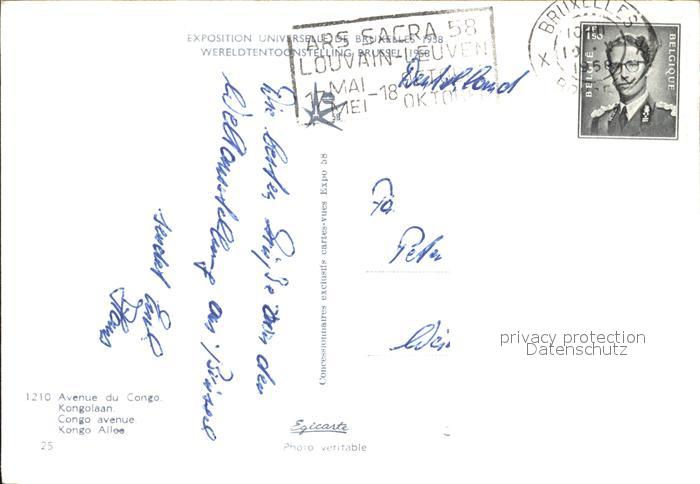 EXPOSITION UNIVERSELLE DE BRUXELLES 1958
WERELDTENTOONSTELLING BRUSSEL 1958
ARS SACRA 58
LOUVAIN-LEUVEN
17 MAI - 18 OCTO
MEI OKTO
BRUXELLES
X
1958
1F50
BELGIË
BELGIQUE
Deutschland
Die besten Grüße von der
Weltausstellung aus Brüssel
sendet Euch
Hans
Concessionnaires exclusifs cartes-vues Expo 58
Fa
Peter
privacy protection
Datenschutz
1210 Avenue du Congo.
Kongolaan.
Congo avenue.
Kongo Allee.
25
Egicarte
Photo véritable